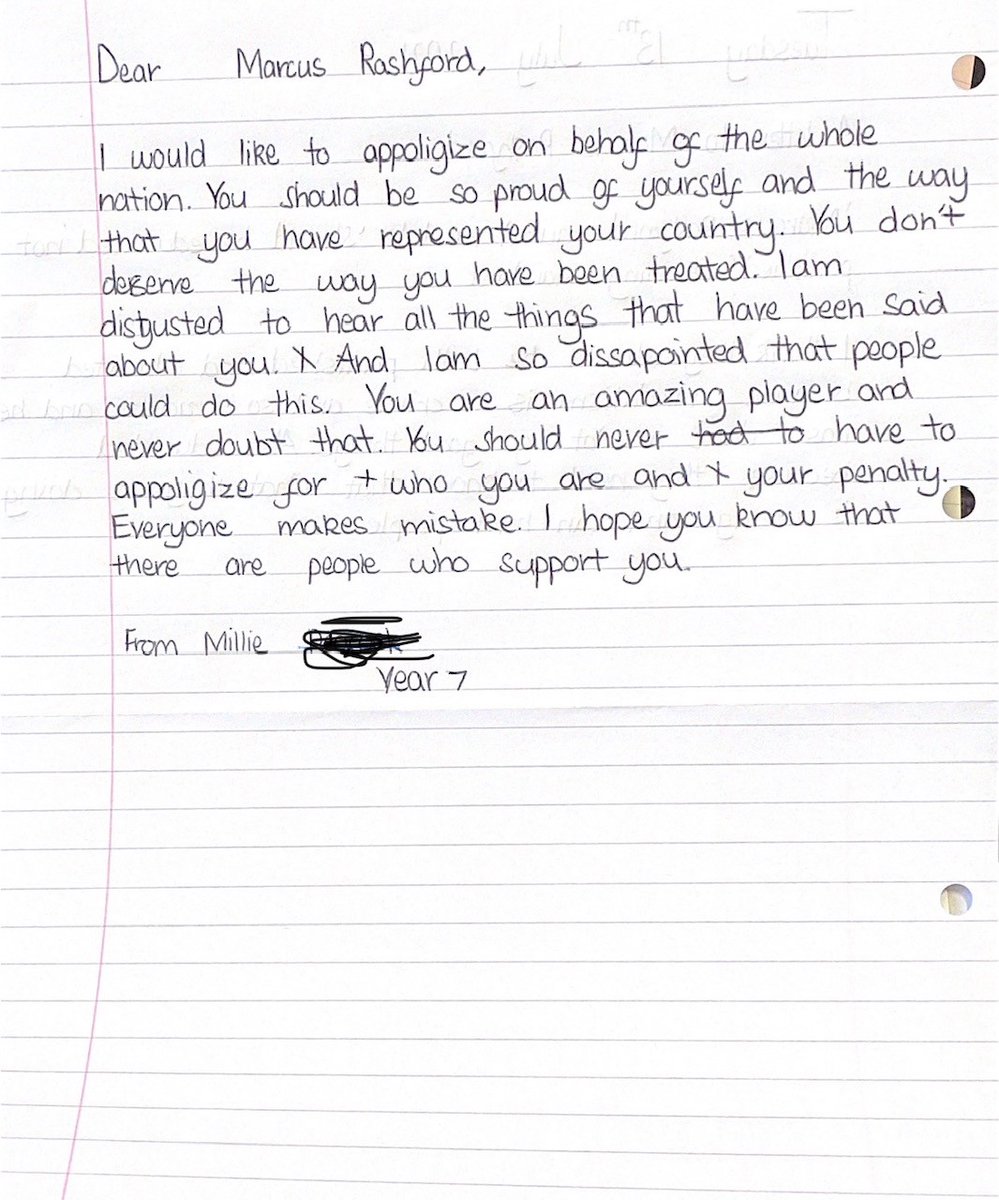 Dear Marcus Rashford,
I would like to appoligize on behalf of the whole
nation. You should be so proud of yourself and the way
that you have represented your country. You don't
deserve the way you have been treated. I am
disgusted to hear all the things that have been said
about you. X And I am so dissapointed that people
could do this. You are an amazing player and
never doubt that. You should never had to have to
appoligize for + who you are and X your penalty.
Everyone makes mistake. I hope you know that
there are people who support you.
From Millie
Year 7